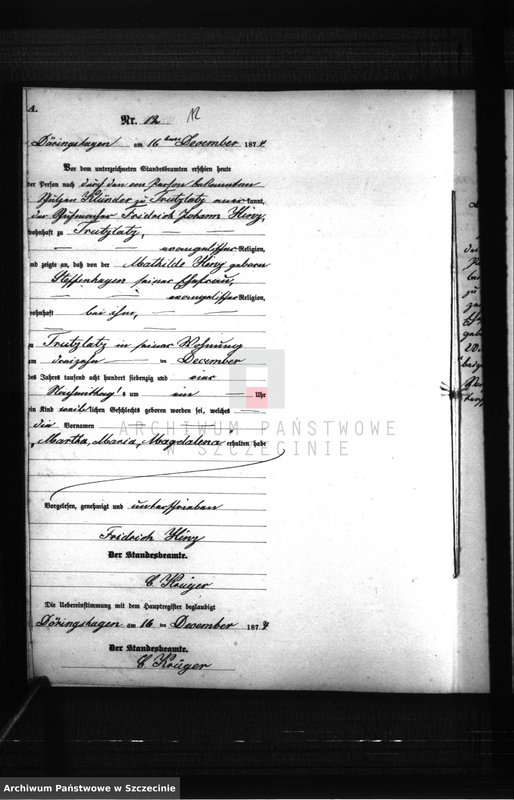 A.
Nr. 12 12
Döringshagen am 16ten December 1874
Vor dem unterzeichneten Standesbeamten erschien heute
der Person nach durch den von Person bekannten
Klünder zu Trutzlatz anerkannt,
der Friedrich Johann Hinz,
wohnhaft zu Trutzlatz,
evangelischer Religion,
und zeigte an, daß von der Mathilde Hinz geboren
Steffenhagen seiner Ehefrau,
evangelischer Religion,
wohnhaft bei ihm,
zu Trutzlatz in seiner Wohnung
am dreizehn ten December
des Jahres tausend acht hundert siebenzig und vier
Nachmittags um ein Uhr
ein Kind weiblichen Geschlechts geboren worden sei, welches
die Vornamen
"Martha, Maria, Magdalena" erhalten habe
Vorgelesen, genehmigt und unterschrieben
Fridrich Hinz
Der Standesbeamte.
C Krüger
Die Uebereinstimmung mit dem Hauptregister beglaubigt
Döringshagen am 16 ten December 1874
Der Standesbeamte.
C Krüger
ARCHIWUM PAŃSTWOWE
W SZCZECINIE
Archiwum Państwowe w Szczecinie